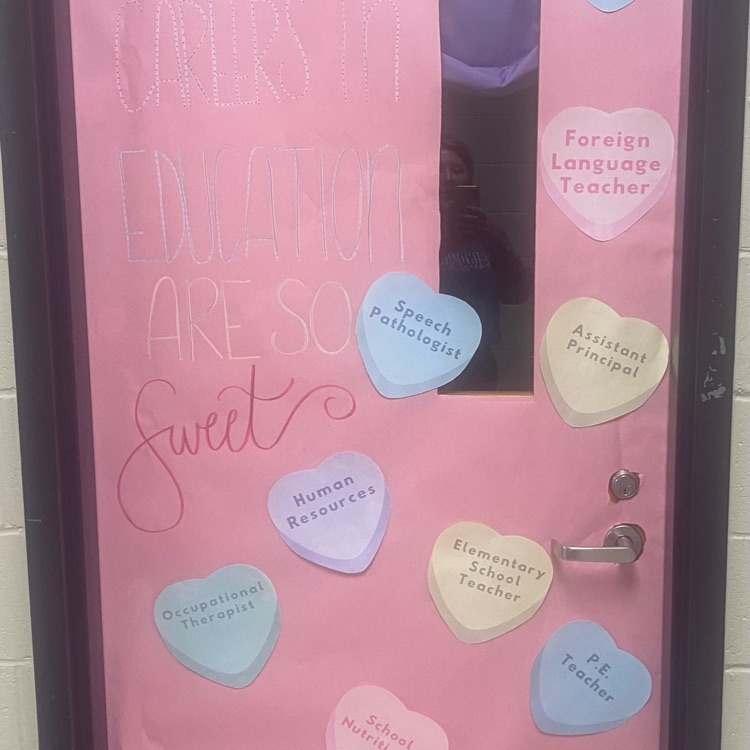 CAREERS IN
EDUCATION
ARE SO
Sweet
Foreign
Language
Teacher
Speech
Pathologist
Assistant
Principal
Human
Resources
Elementary
School
Teacher
Occupational
Therapist
P.E.
Teacher
School